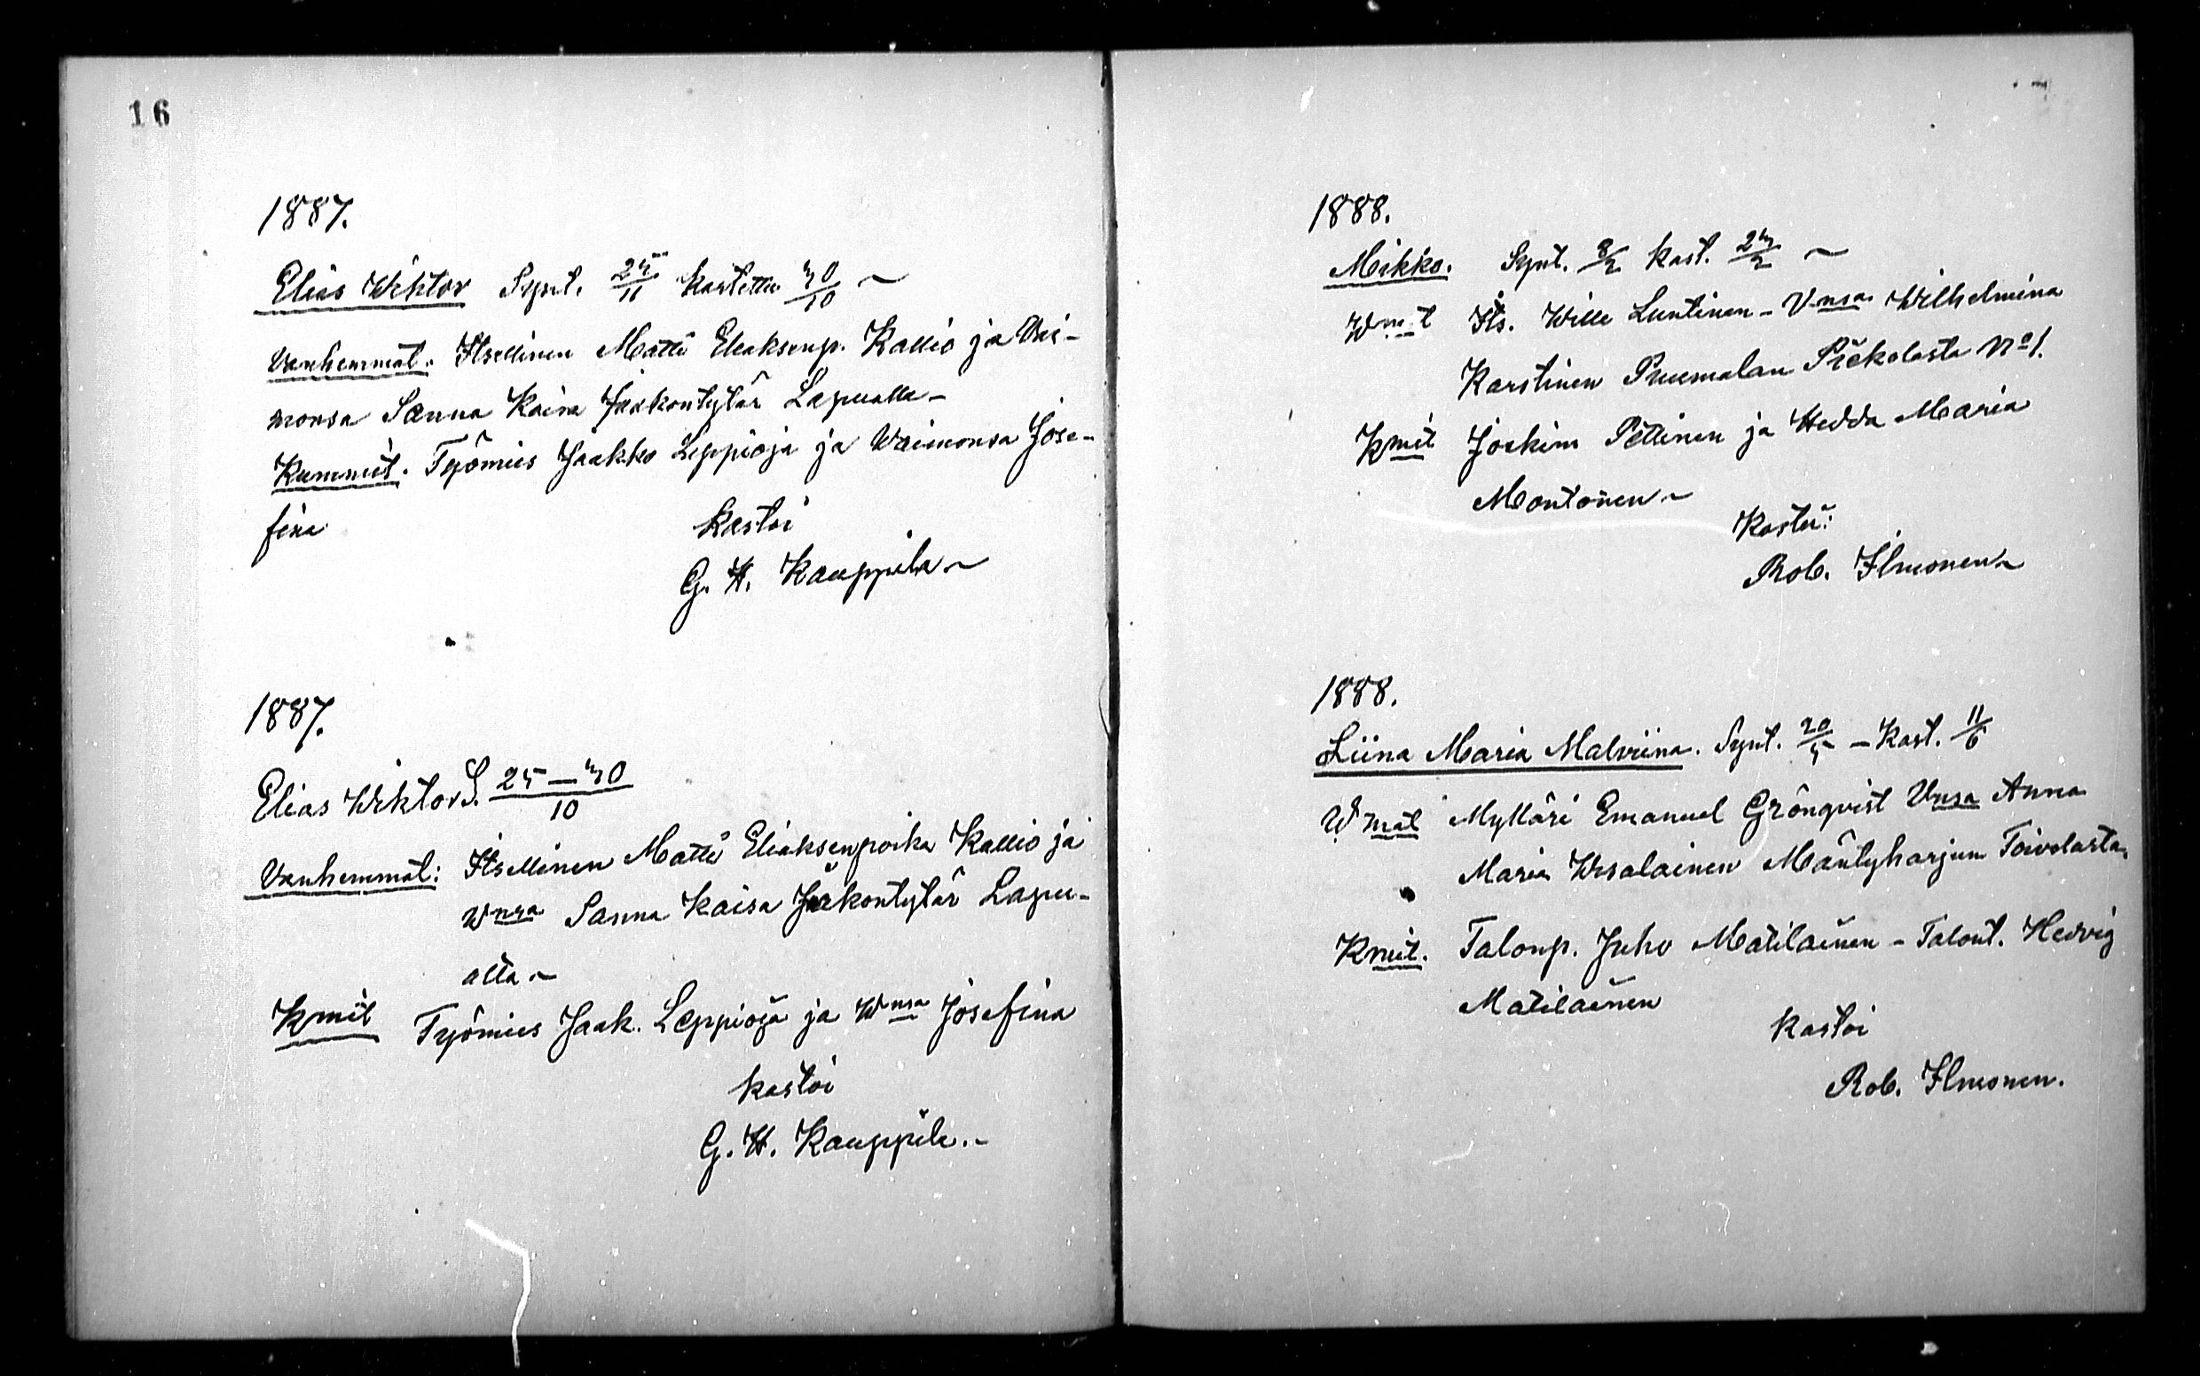 16
1887.
Elias Wiktor Synt. 25/11 Kastettu 30/10 ~
Vanhemmat: Itsellinen Matti Eliaksenp. Kallio ja Vai-
monsa Sanna Kaisa Jaakontytär Lapualla -
Kummit. Työmies Jaakko Leppioja ja Waimonsa Jose-
fina
Kastoi
G. H. Kauppila ~
1887.
Elias Wiktor S. 25-30/10
Vanhemmat: Itsellinen Matti Eliaksenpoika Kallio ja
Wnsa Sanna Kaisa Jaakontytär Lapu-
alta ~
Kmit Työmies Jaak. Leppioja ja Wnsa Josefina
Kastoi
G. H. Kauppila. -
1888.
Mikko. Synt. 8/2 Kast. 23/2 ~
Wm:t Its. Wille Luntinen - Vnsa Wilhelmina
Karstinen Puumalan Piekolasta No 1.
Kmit Joakim Pettinen ja Hedda Maria
Montonen ~
Kastoi:
Rob. Ilmonen ~
1888.
Liina Maria Malviina. Synt. 20/5 - Kast. 11/6
Wmat Mylläri Emanuel Grönqvist Vnsa Anna
Maria Wesalainen Mäntyharjun Toivolasta.
Kmit. Talonp. Juho Matilainen - Talont. Hedvig
Matilainen
Kastoi
Rob. Ilmonen.